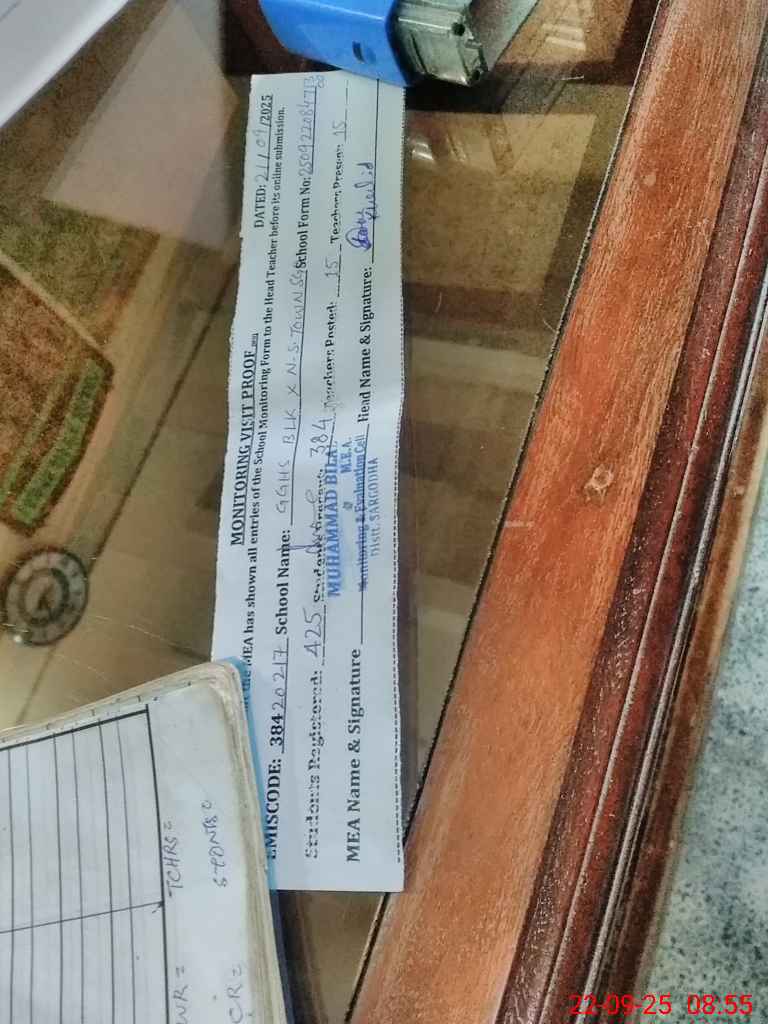 MONITORING VISIT PROOF
DATED: 21/09/2025
the MEA has shown all entries of the School Monitoring Form to the Head Teacher before its online submission.
EMISCODE: 38420217 School Name: GGHS BLK X N-S-TOWN SGD School Form No: 250922084713
Students Registered: 425 Students Present: 384 Teachers Posted: 15 Teachers Present: 15
MEA Name & Signature Head Name & Signature:
MUHAMMAD BILAL
M.E.A.
Monitoring & Evaluation Cell
Distt. SARGODHA
TCHRS =
WR =
CR =
22-09-25 08.55